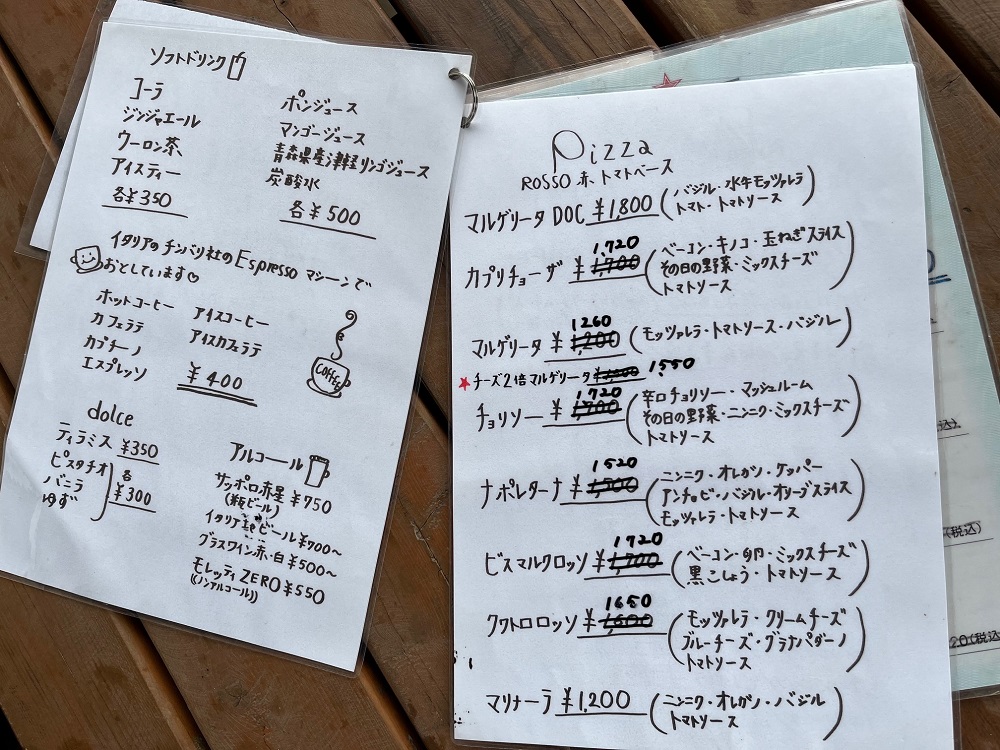 ソフトドリンク
コーラ
ジンジャエール
ウーロン茶
アイスティー
各¥350
ポンジュース
マンゴージュース
青森県産津軽リンゴジュース
炭酸水
各¥500
イタリアのチンバリ社のEspressoマシーンで
おとしています♡
ホットコーヒー
カフェラテ
カプチーノ
エスプレッソ
アイスコーヒー
アイスカフェラテ
¥400
Coffee
dolce
ティラミス ¥350
ピスタチオ
バニラ
ゆず
各
¥300
アルコール
サッポロ赤星 ¥750
(瓶ビール)
イタリア ビール ¥700〜
グラスワイン赤・白 ¥500〜
モレッティ ZERO ¥550
(ノンアルコール)
Pizza
ROSSO 赤、トマトベース
マルゲリータ DOC ¥1,800 (バジル・水牛モッツァレラ
トマト・トマトソース)
1,720
カプリチョーザ ¥1,700 (ベーコン・キノコ・玉ねぎスライス
その日の野菜・ミックスチーズ
トマトソース)
1260
マルゲリータ ¥1,200 (モッツァレラ・トマトソース・バジル)
★チーズ2倍マルゲリータ 1550
1720
チョリソー ¥1,700 (辛口チョリソー・マッシュルーム
その日の野菜・ニンニク・ミックスチーズ
トマトソース)
1520
ナポレターナ ¥1,500 (ニンニク・オレガノ・ケッパー
アンチョビ・バジル・オリーブスライス
モッツァレラ・トマトソース)
1720
ビスマルクロッソ ¥1,700 (ベーコン・卵・ミックスチーズ
黒こしょう・トマトソース)
1650
クワトロロッソ ¥1,600 (モッツァレラ・クリームチーズ
ブルーチーズ・グラナパダーノ
トマトソース)
マリナーラ ¥1,200 (ニンニク・オレガノ・バジル
トマトソース)
(税込)